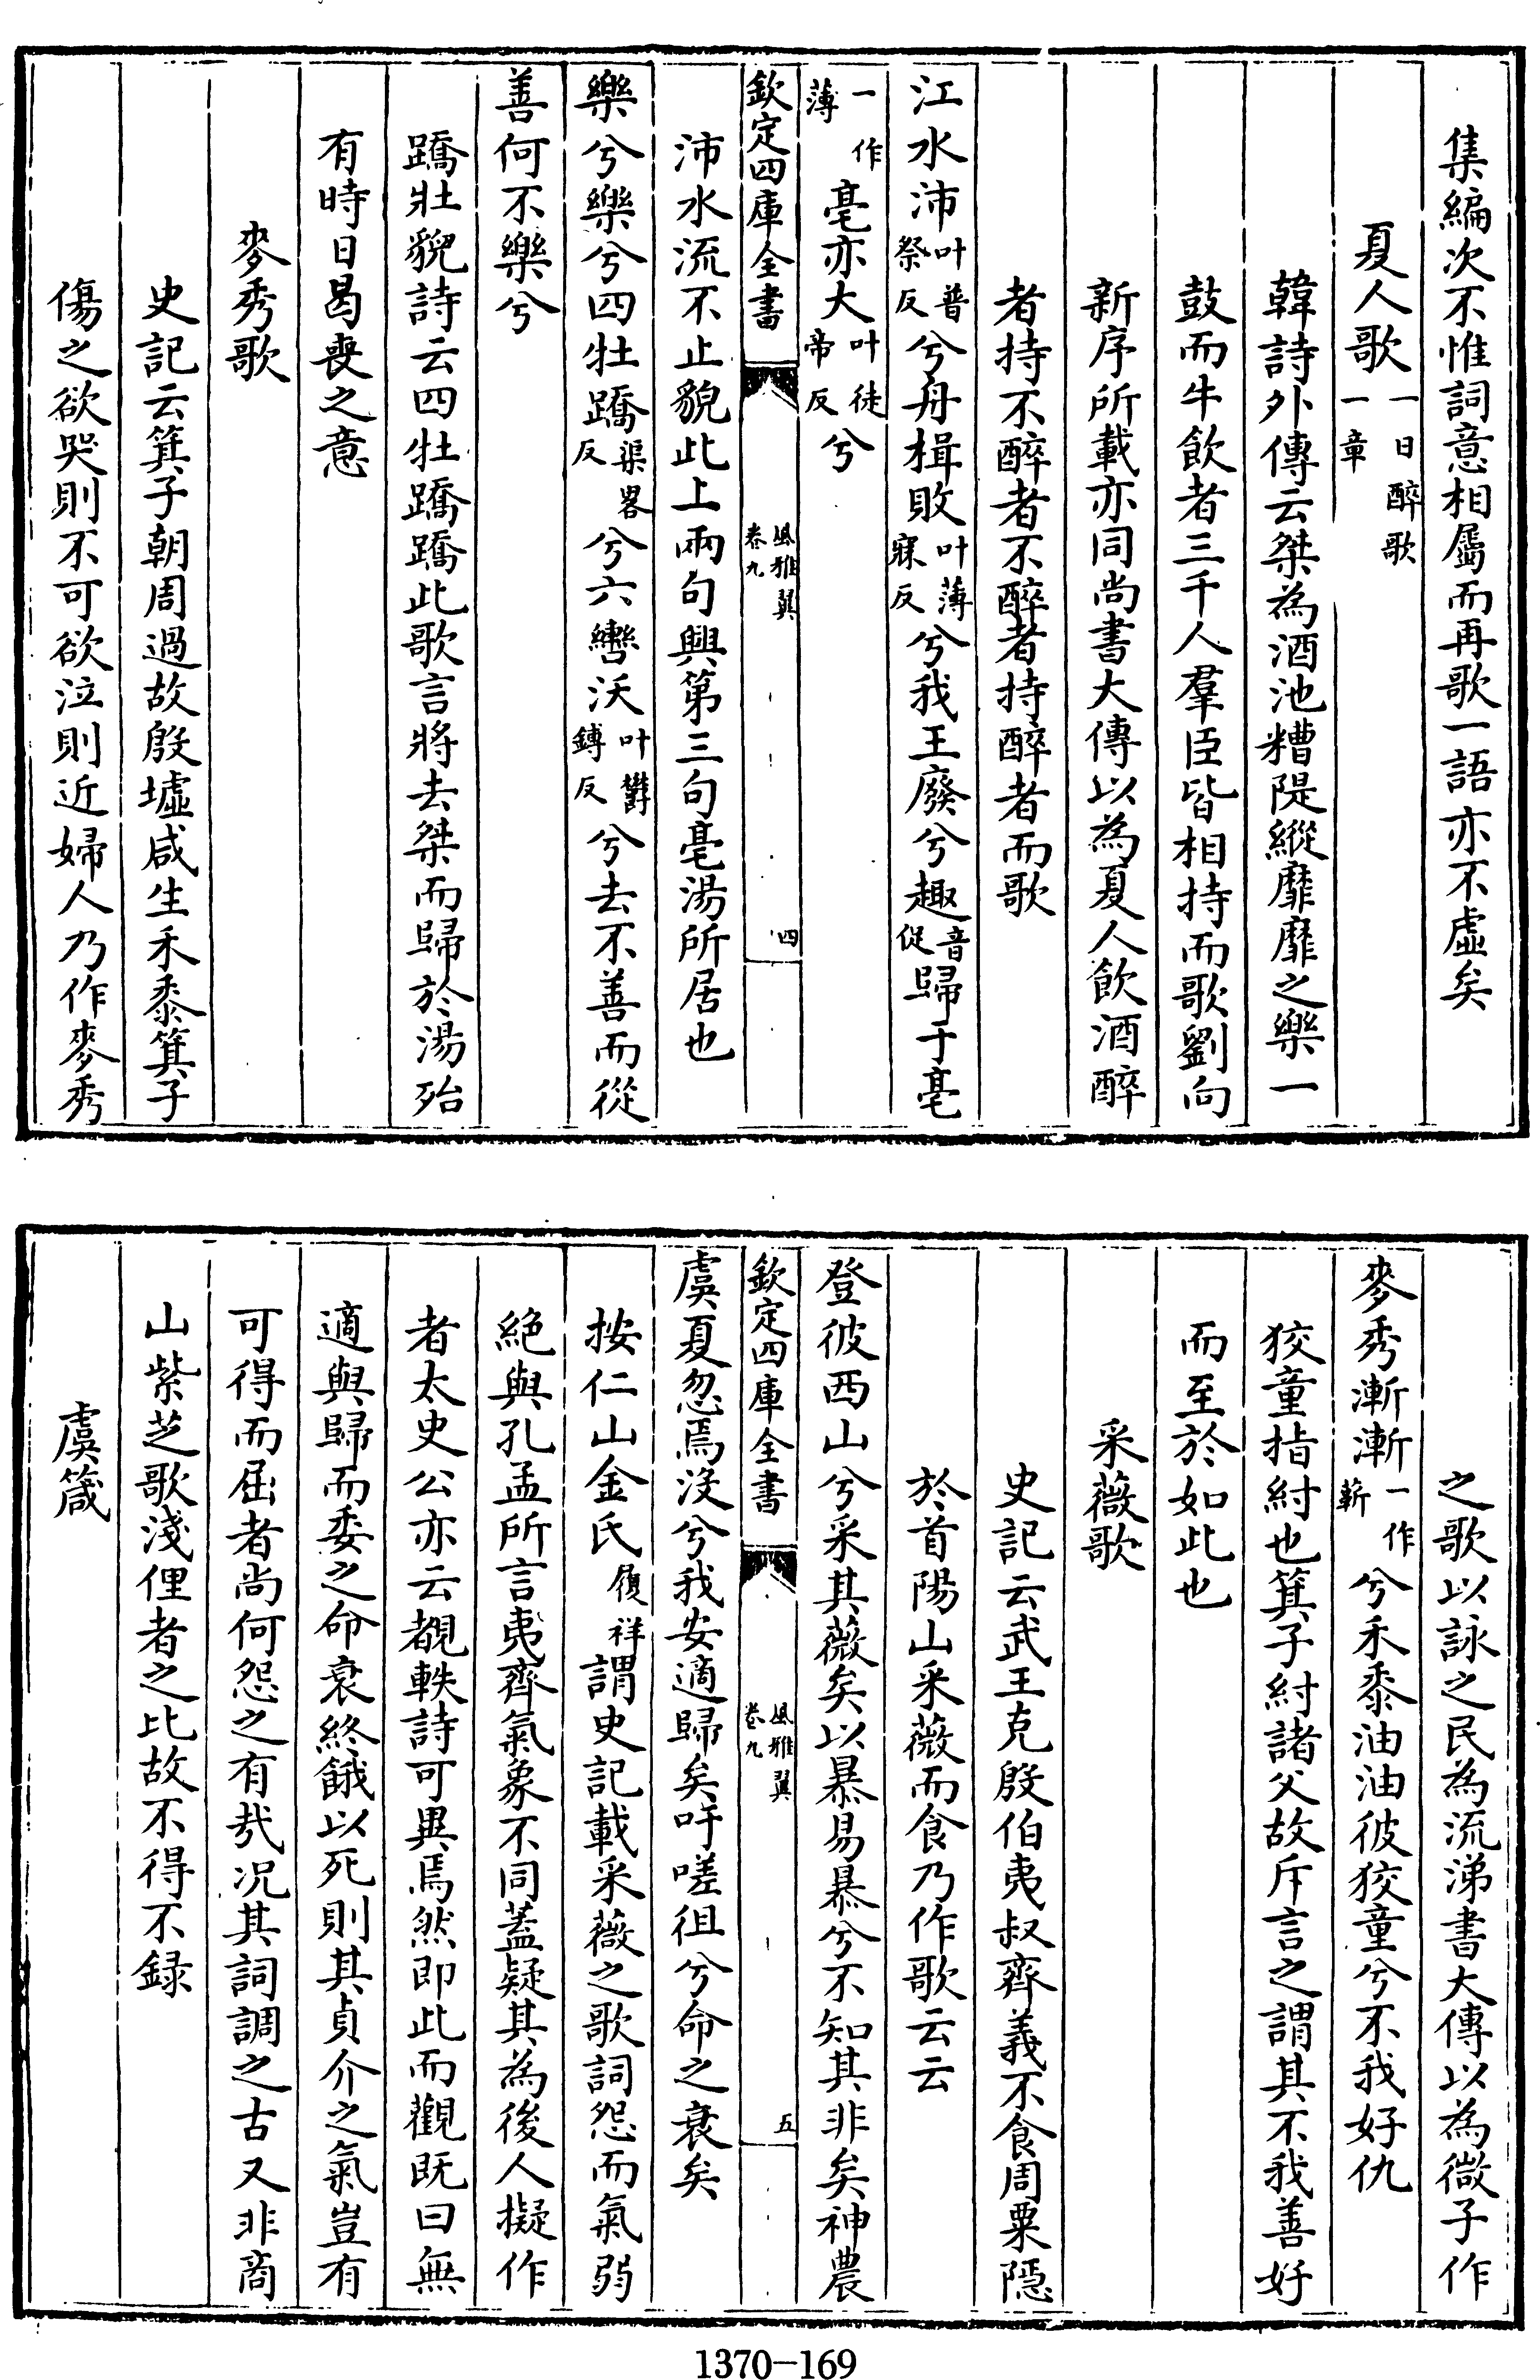 集編次不惟詞意相屬而再歌一語亦不虛矣
夏人歌一曰醉歌一章
韓詩外傳云桀為酒池糟隄縱靡靡之樂一
鼓而牛飲者三千人羣臣皆相持而歌劉向
新序所載亦同尚書大傳以為夏人飲酒醉
者持不醉者不醉者持醉者而歌
江水沛叶普祭反兮舟楫敗叶薄寐反兮我王廢兮趣音促歸于亳
一作薄亳亦大叶徒帝反兮
欽定四庫全書 風雅翼卷九 四
沛水流不止貌此上兩句興第三句亳湯所居也
樂兮樂兮四牡蹻渠畧反兮六轡沃叶鬱鎛反兮去不善而從
善何不樂兮
蹻壯貌詩云四牡蹻蹻此歌言將去桀而歸於湯殆
有時日曷喪之意
麥秀歌
史記云箕子朝周過故殷墟咸生禾黍箕子
傷之欲哭則不可欲泣則近婦人乃作麥秀
之歌以詠之民為流涕書大傳以為微子作
麥秀漸漸一作蔪兮禾黍油油彼狡童兮不我好仇
狡童指紂也箕子紂諸父故斥言之謂其不我善好
而至於如此也
采薇歌
史記云武王克殷伯夷叔齊義不食周粟隱
於首陽山采薇而食乃作歌云云
登彼西山兮采其薇矣以暴易暴兮不知其非矣神農
欽定四庫全書 風雅翼卷九 五
虞夏忽焉沒兮我安適歸矣吁嗟徂兮命之衰矣
按仁山金氏履祥謂史記載采薇之歌詞怨而氣弱
絕與孔孟所言夷齊氣象不同蓋疑其為後人擬作
者太史公亦云覩軼詩可異焉然即此而觀既曰無
適與歸而委之命衰終餓以死則其貞介之氣豈有
可得而屈者尚何怨之有哉况其詞調之古又非商
山紫芝歌淺俚者之比故不得不録
虞箴
1370-169